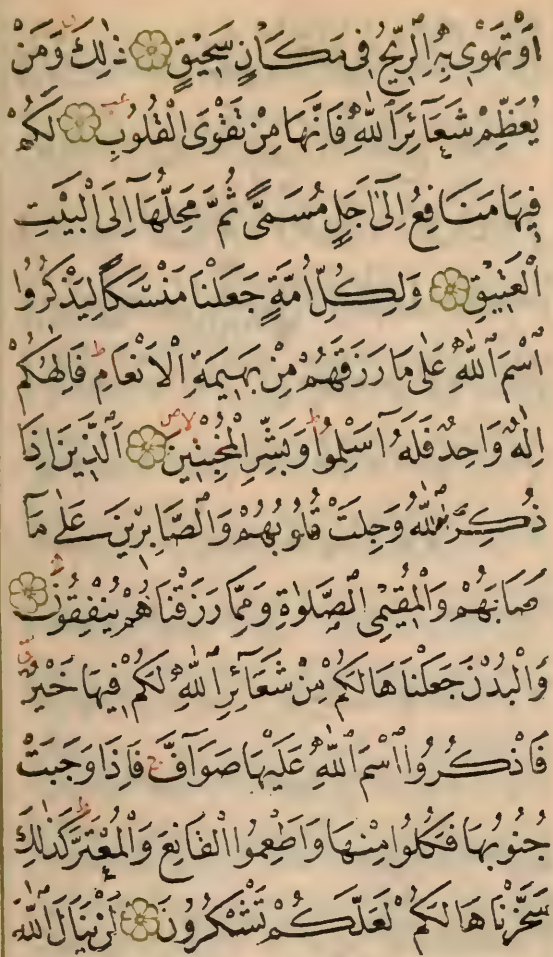 اَوْ تَهْوٖى بِهِ الرّٖيحُ فٖى مَكَانٍ سَحٖيقٍ ذٰلِكَ وَمَنْ
يُعَظِّمْ شَعَآئِرَ اللّٰهِ فَاِنَّهَا مِنْ تَقْوَى الْقُلُوبِ لَكُمْ
فٖيهَا مَنَافِعُ اِلٰٓى اَجَلٍ مُسَمًّى ثُمَّ مَحِلُّهَآ اِلَى الْبَيْتِ
الْعَتٖيقِ وَلِكُلِّ اُمَّةٍ جَعَلْنَا مَنْسَكًا لِيَذْكُرُوا
اسْمَ اللّٰهِ عَلٰى مَا رَزَقَهُمْ مِنْ بَهٖيمَةِ الْاَنْعَامِ ط فَاِلٰهُكُمْ
اِلٰهٌ وَاحِدٌ فَلَهُٓ اَسْلِمُوا ط وَبَشِّرِ الْمُخْبِتٖينَ لا الَّذٖينَ اِذَا
ذُكِرَ اللّٰهُ وَجِلَتْ قُلُوبُهُمْ وَالصَّابِرٖينَ عَلٰى مَآ
اَصَابَهُمْ وَالْمُقٖيمِى الصَّلٰوةِ وَمِمَّا رَزَقْنَاهُمْ يُنْفِقُونَ
وَالْبُدْنَ جَعَلْنَاهَا لَكُمْ مِنْ شَعَآئِرِ اللّٰهِ لَكُمْ فٖيهَا خَيْرٌ
فَاذْكُرُوا اسْمَ اللّٰهِ عَلَيْهَا صَوَآفَّ ج فَاِذَا وَجَبَتْ
جُنُوبُهَا فَكُلُوا مِنْهَا وَاَطْعِمُوا الْقَانِعَ وَالْمُعْتَرَّ ط كَذٰلِكَ
سَخَّرْنَاهَا لَكُمْ لَعَلَّكُمْ تَشْكُرُونَ لَنْ يَنَالَ اللّٰهَ